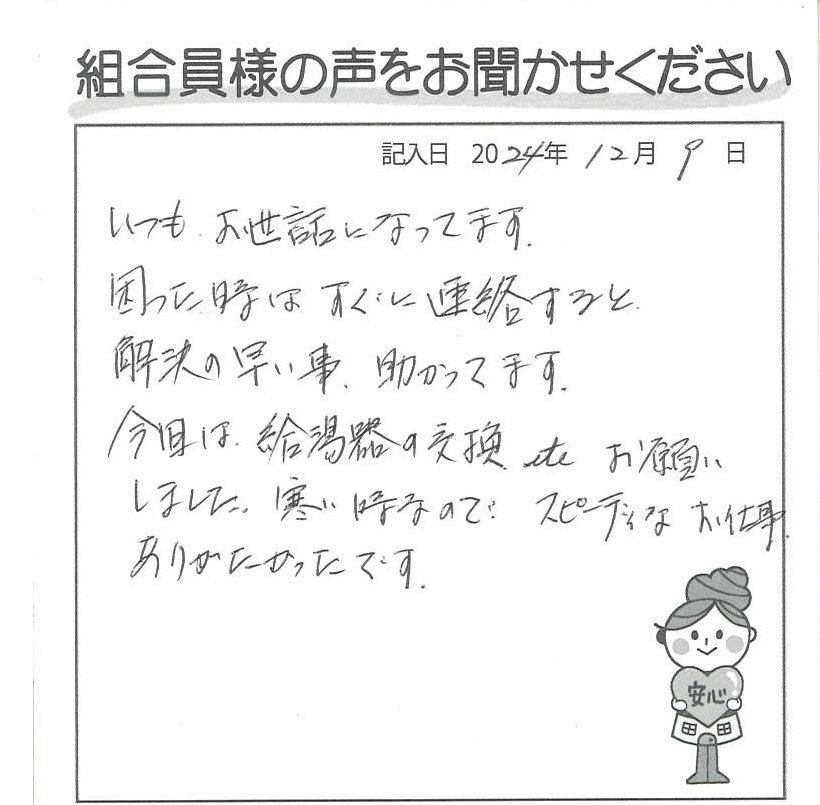 組合員様の声をお聞かせください
記入日 2024年 12月 9日
いつも お世話になってます。
困った時は すぐに連絡すると
解決の早い事、助かってます。
今回は、給湯器の交換 etc お願い
しました。寒い時なので スピーディな お仕事
ありがたかったです。
安心